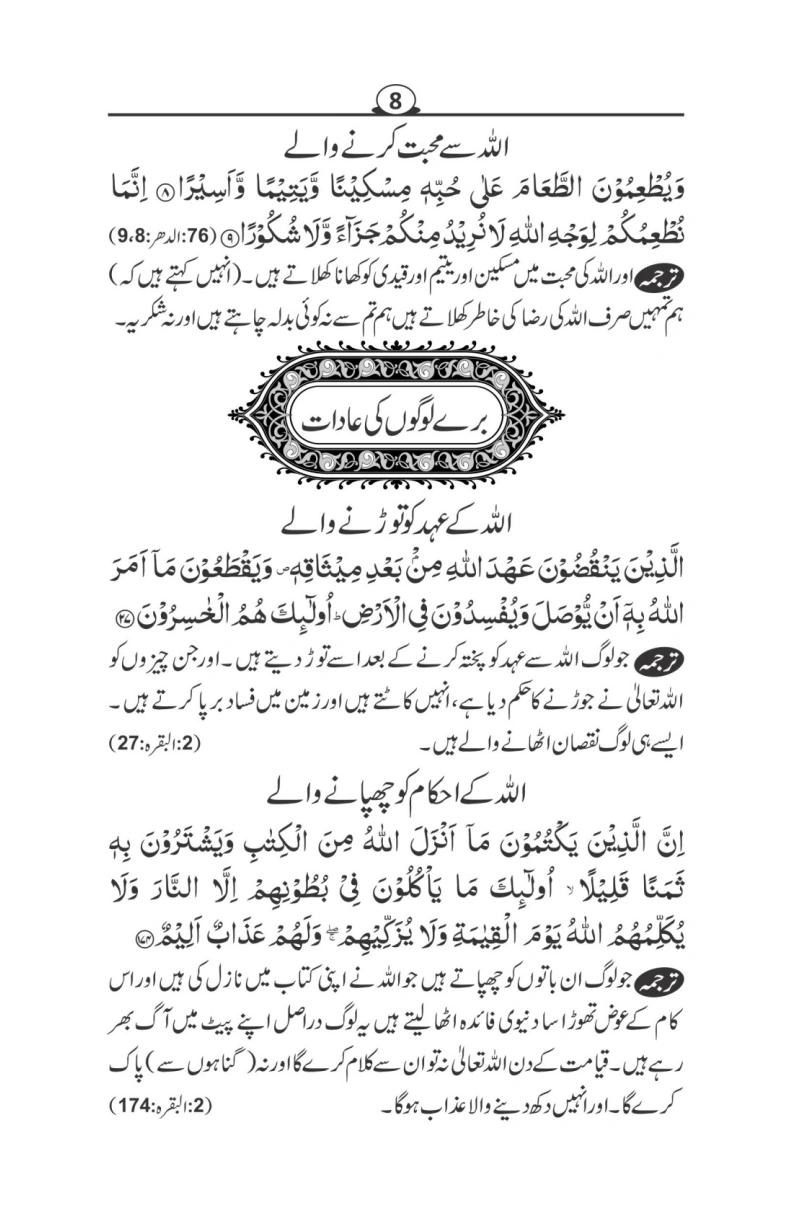 8
اللہ سے محبت کرنے والے
وَيُطْعِمُوْنَ الطَّعَامَ عَلٰى حُبِّهٖ مِسْكِيْنًا وَّيَتِيْمًا وَّاَسِيْرًا ۝۸ اِنَّمَا
نُطْعِمُكُمْ لِوَجْهِ اللّٰهِ لَا نُرِيْدُ مِنْكُمْ جَزَآءً وَّلَا شُكُوْرًا ۝۹ (76:الدھر:9،8)
ترجمہ اور اللہ کی محبت میں مسکین اور یتیم اور قیدی کو کھانا کھلاتے ہیں۔ (انہیں کہتے ہیں کہ)
ہم تمہیں صرف اللہ کی رضا کی خاطر کھلاتے ہیں ہم تم سے نہ کوئی بدلہ چاہتے ہیں اور نہ شکریہ۔
برے لوگوں کی عادات
اللہ کے عہد کو توڑنے والے
الَّذِيْنَ يَنْقُضُوْنَ عَهْدَ اللّٰهِ مِنْۢ بَعْدِ مِيْثَاقِهٖ ۠ وَيَقْطَعُوْنَ مَآ اَمَرَ
اللّٰهُ بِهٖٓ اَنْ يُّوْصَلَ وَيُفْسِدُوْنَ فِى الْاَرْضِ ؕ اُولٰٓئِكَ هُمُ الْخٰسِرُوْنَ ۝۲۷
ترجمہ جو لوگ اللہ سے عہد کو پختہ کرنے کے بعد اسے توڑ دیتے ہیں۔ اور جن چیزوں کو
اللہ تعالیٰ نے جوڑنے کا حکم دیا ہے، انہیں کاٹتے ہیں اور زمین میں فساد برپا کرتے ہیں۔
ایسے ہی لوگ نقصان اٹھانے والے ہیں۔ (2:البقرہ:27)
اللہ کے احکام کو چھپانے والے
اِنَّ الَّذِيْنَ يَكْتُمُوْنَ مَآ اَنْزَلَ اللّٰهُ مِنَ الْكِتٰبِ وَيَشْتَرُوْنَ بِهٖ
ثَمَنًا قَلِيْلًا ۙ اُولٰٓئِكَ مَا يَاْكُلُوْنَ فِىْ بُطُوْنِهِمْ اِلَّا النَّارَ وَلَا
يُكَلِّمُهُمُ اللّٰهُ يَوْمَ الْقِيٰمَةِ وَلَا يُزَكِّيْهِمْ ۖۚ وَلَهُمْ عَذَابٌ اَلِيْمٌ ۝۱۷۴
ترجمہ جو لوگ ان باتوں کو چھپاتے ہیں جو اللہ نے اپنی کتاب میں نازل کی ہیں اور اس
کام کے عوض تھوڑا سا دنیوی فائدہ اٹھا لیتے ہیں یہ لوگ دراصل اپنے پیٹ میں آگ بھر
رہے ہیں۔ قیامت کے دن اللہ تعالیٰ نہ تو ان سے کلام کرے گا اور نہ (گناہوں سے) پاک
کرے گا۔ اور انہیں دکھ دینے والا عذاب ہوگا۔ (2:البقرہ:174)